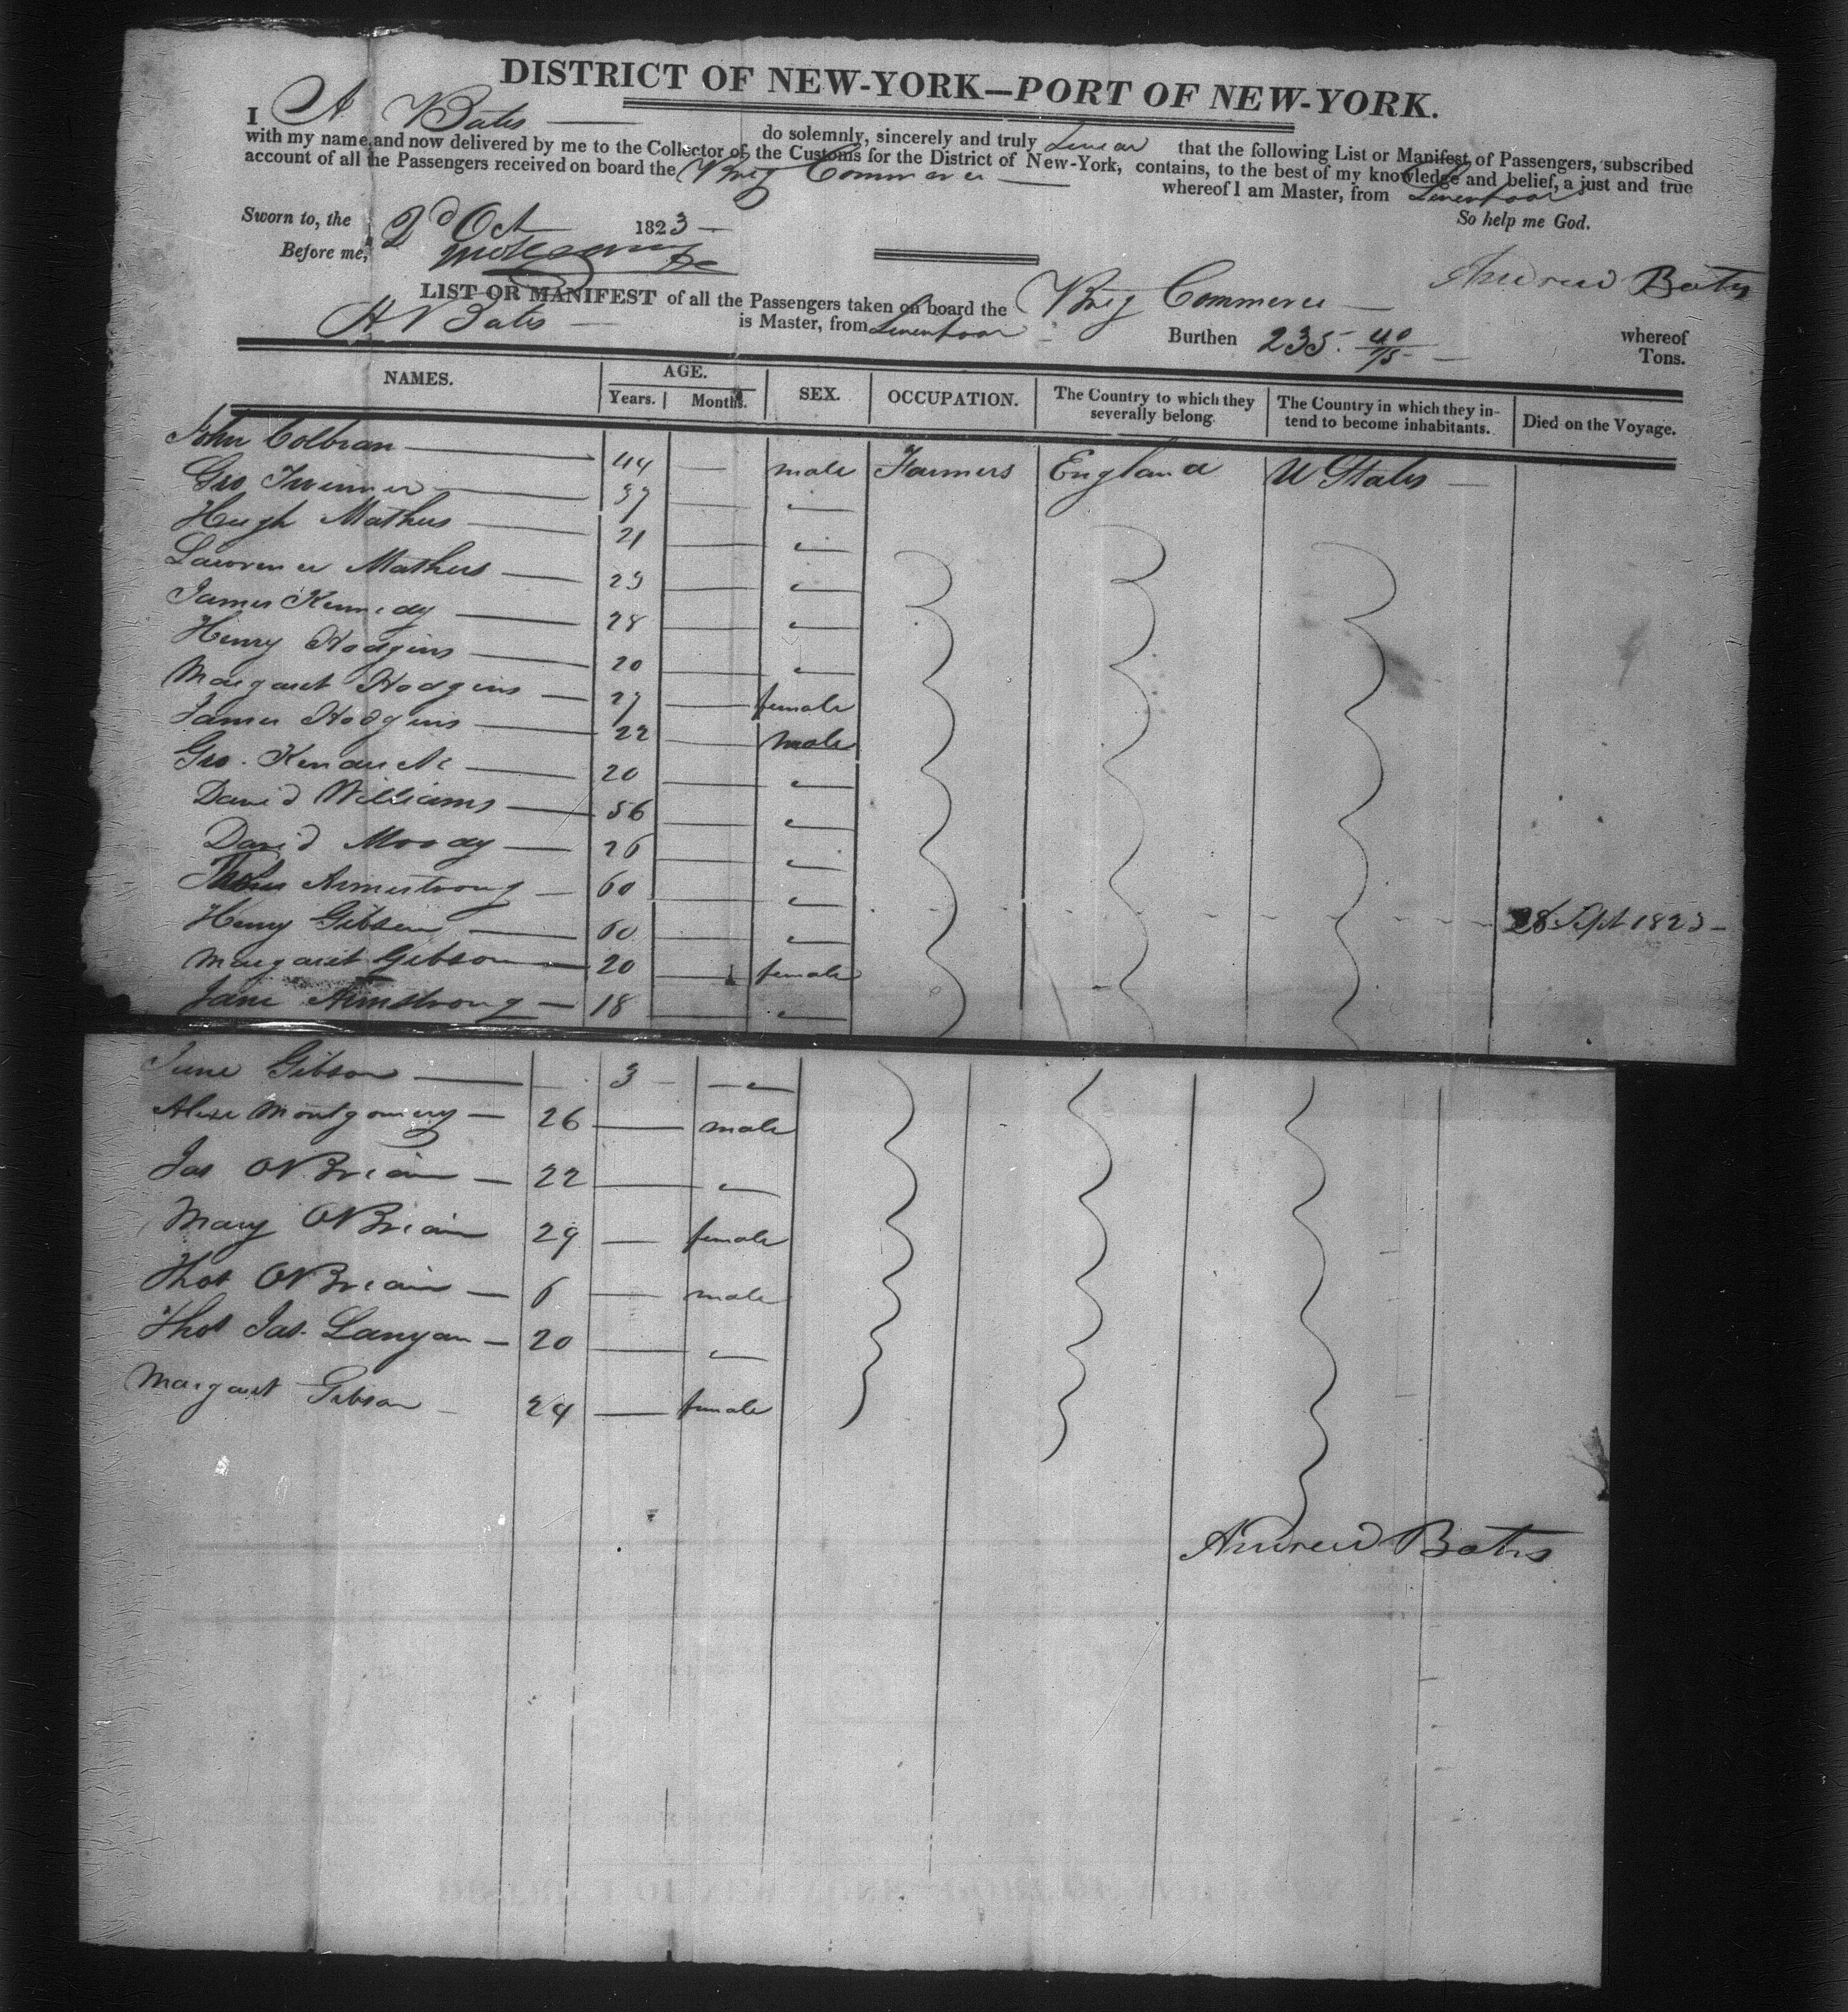 DISTRICT OF NEW-YORK—PORT OF NEW-YORK.
I A Bates do solemnly, sincerely and truly swear that the following List or Manifest of Passengers, subscribed
with my name, and now delivered by me to the Collector of the Customs for the District of New-York, contains, to the best of my knowledge and belief, a just and true
account of all the Passengers received on board the Brig Commerce whereof I am Master, from Liverpool
So help me God.
Sworn to, the 2d Oct 1823
Before me,
Andrew Bates
LIST OR MANIFEST of all the Passengers taken on board the Brig Commerce whereof
A Bates is Master, from Liverpool Burthen 235. 40/95 Tons.
NAMES. AGE. Years. Months. SEX. OCCUPATION. The Country to which they severally belong. The Country in which they intend to become inhabitants. Died on the Voyage.
John Colbran 44 male Farmers England U States
Geo 37 "
Hugh Mathews 21 "
Lawrence Mathews 23 "
James Kennedy 28 "
Henry Hodgins 20 "
Margaret Hodgins 27 female
James Hodgins 22 male
Geo. Kendrick 20 "
David Williams 56 "
David Moody 26 "
Armstrong 60 "
Henry Gibson 60 " 28 Sept 1823
Margaret Gibson 20 female
Jane Armstrong 18 "
June Gibson 3 "
Alexe Montgomery 26 male
Jas OBrian 22 "
Mary OBrian 29 female
Thos OBrian 6 male
Thos Jas. Lanyan 20 "
Margaret Gibson 24 female
Andrew Bates